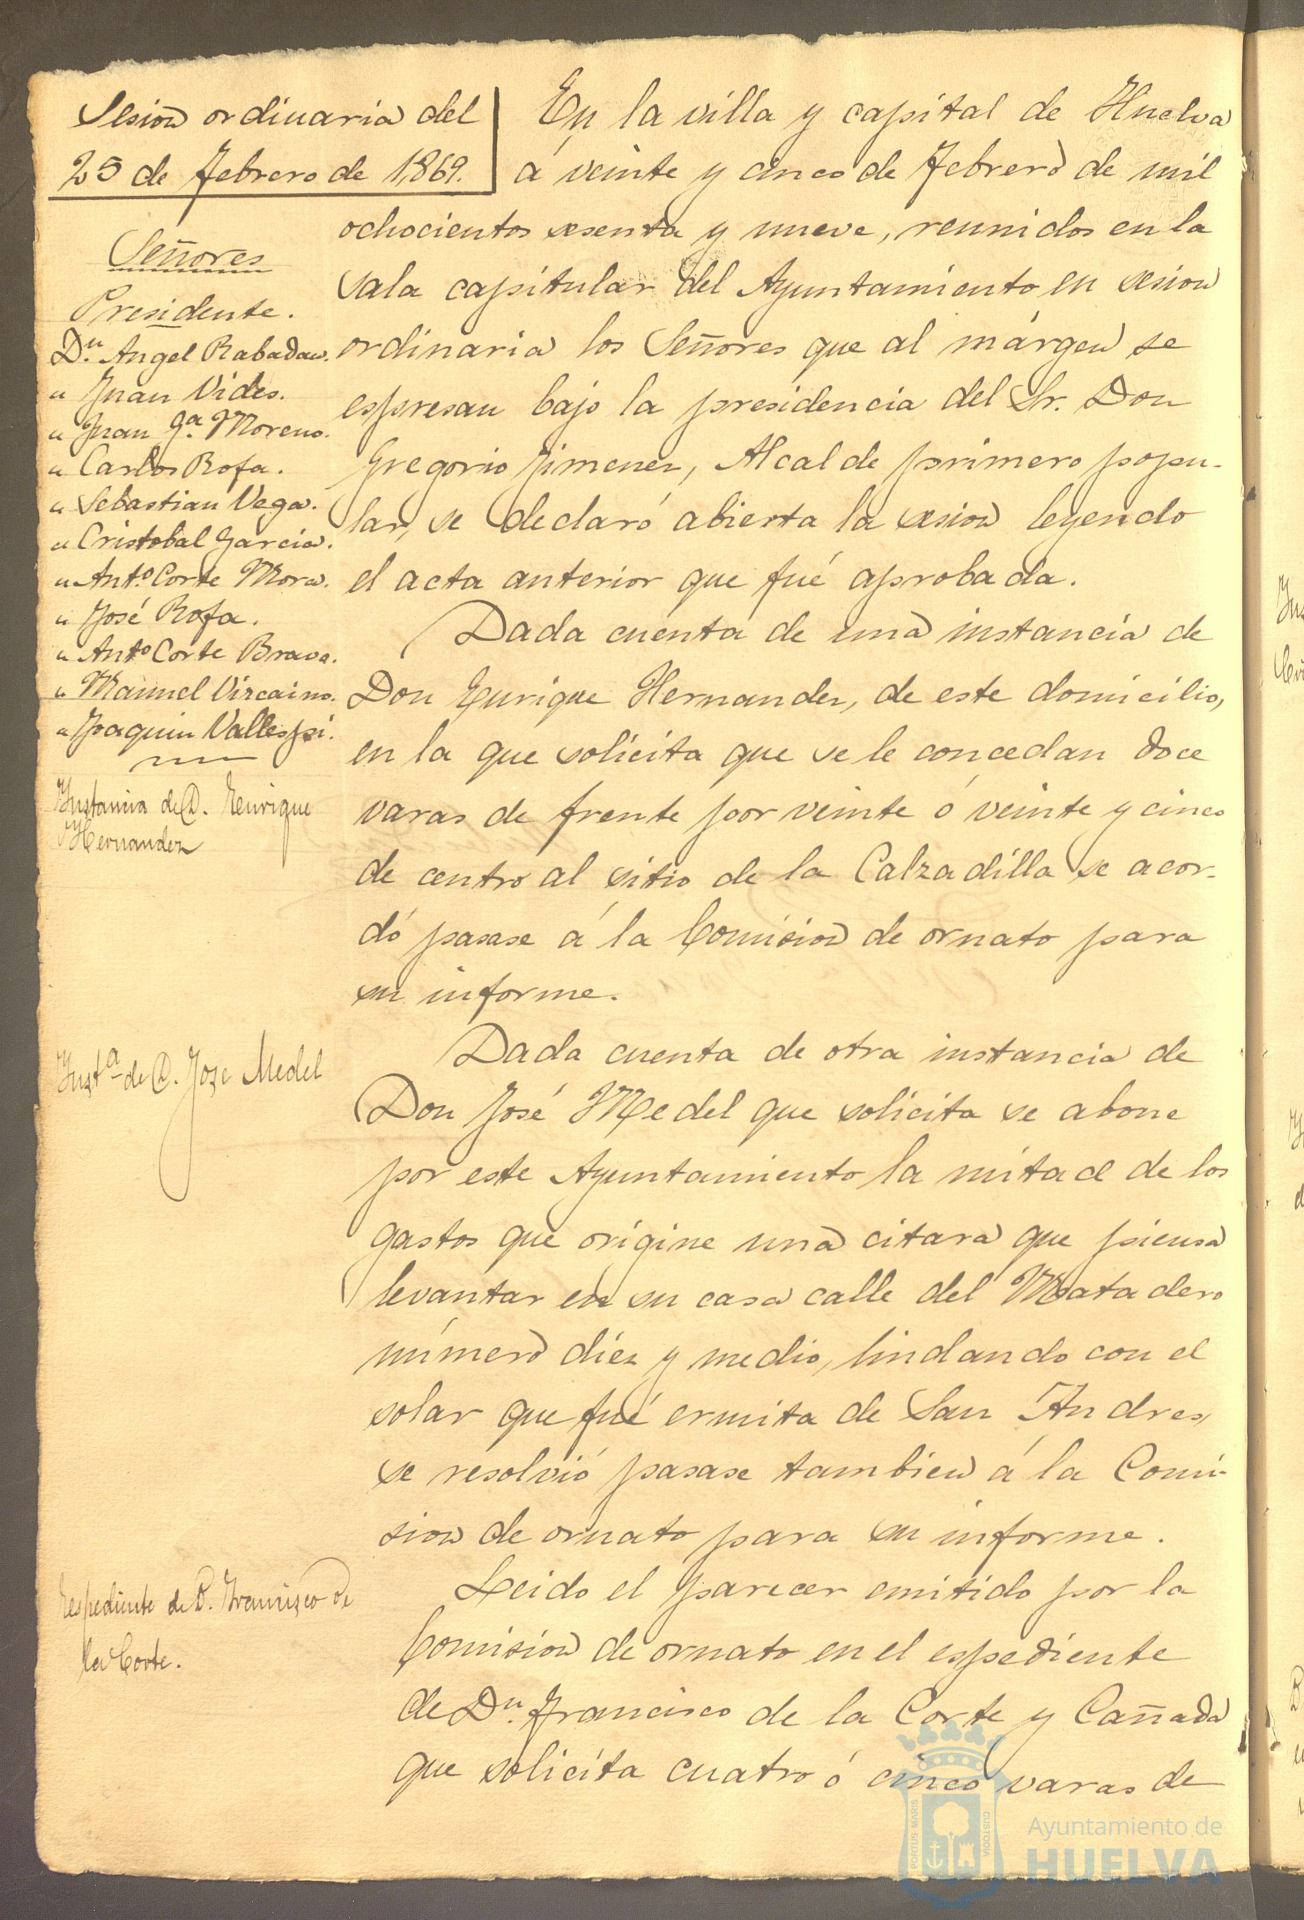 Sesion ordinaria del
25 de febrero de 1869.
Señores
Presidente.
Dn. Angel Rabadan.
" Juan Vides.
" Juan Ga. Moreno.
" Carlos Rofa.
" Sebastian Vega.
" Cristobal Garcia.
" Anto. Corte Mora.
" José Rofa.
" Anto Corte Bravo.
" Manuel Vizcaino.
" Joaquin Vallespi.
En la villa y capital de Huelva
á veinte y cinco de febrero de mil
ochocientos sesenta y nueve, reunidos en la
sala capitular del Ayuntamiento en sesion
ordinaria los Señores que al márgen se
espresan bajo la presidencia del Sr. Don
Gregorio Jimenez, Alcalde primero popu-
lar, se declaró abierta la sesion leyendo
el acta anterior que fué aprobada.
Instancia de D. Enrique
Hernandez
Dada cuenta de una instancia de
Don Enrique Hernandez, de este domicilio,
en la que solicita que se le concedan doce
varas de frente por veinte ó veinte y cinco
de centro al sitio de la Calzadilla se acor-
dó pasase á la Comision de ornato para
su informe.
Insta de D. Jose Medel
Dada cuenta de otra instancia de
Don José Medel que solicita se abone
por este Ayuntamiento la mitad de los
gastos que origine una citara que piensa
levantar en su casa calle del Matadero
número diez y medio, lindando con el
solar que fué ermita de San Andres,
se resolvió pasase tambien á la Comi-
sion de ornato para su informe.
Espediente de D. Francisco de
la Corte.
Leido el parecer emitido por la
Comision de ornato en el espediente
de Dn. Francisco de la Corte y Cañada
que solicita cuatro ó cinco varas de
PORTUS MARIS
CUSTODIA
Ayuntamiento de
HUELVA